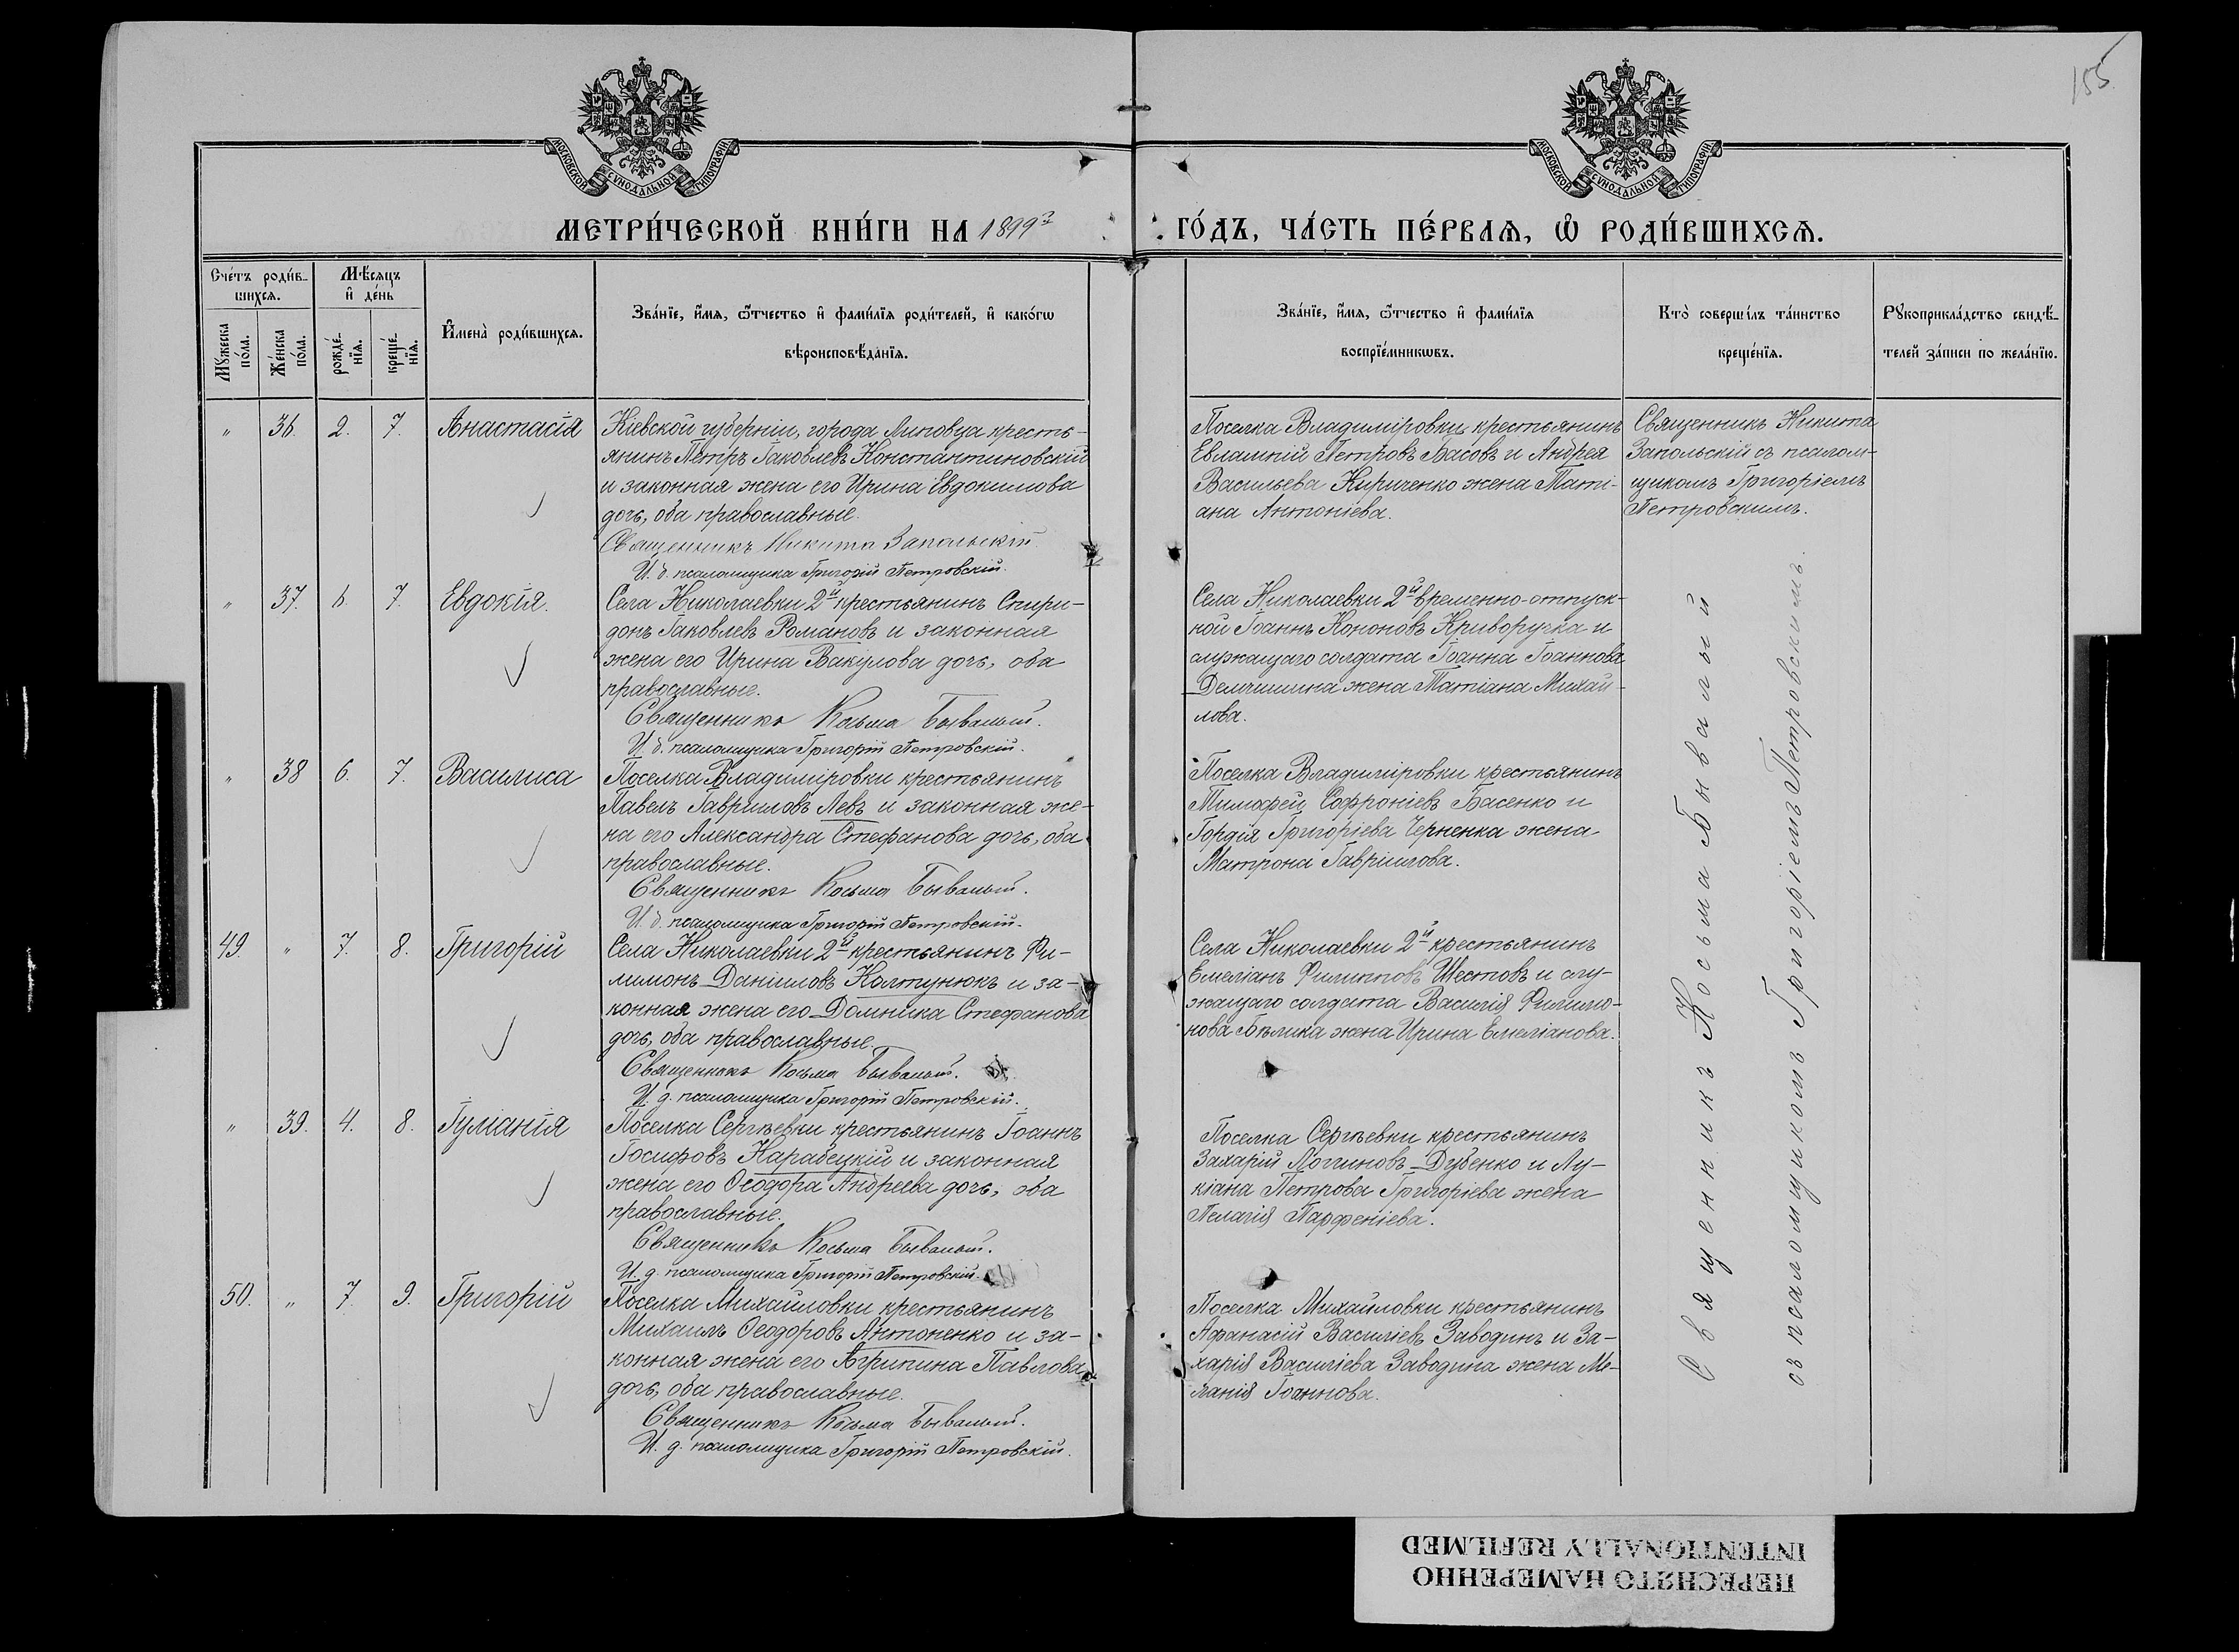 155
МОСКОВСКОЙ СѴНОДАЛЬНОЙ ТИПОГРАФІИ
МОСКОВСКОЙ СѴНОДАЛЬНОЙ ТИПОГРАФІИ
МЕТРИ́ЧЕСКОЙ КНИ́ГИ НА 1899й
ГО́ДЪ, ЧА́СТЬ ПЕ́РВАѦ, Ѡ҆ РОДИ́ВШИХСѦ.
Сче́тъ роди́в-
шихсѧ.
Мѣ́сѧцъ
и҆ де́нь
И҆мена̀ роди́вшихсѧ.
Зва́нїе, и҆́мѧ, ѻ҆́тчество и҆ фами́лїѧ роди́телей, и҆ како́гѡ
вѣроисповѣ́данїѧ.
Мꙋ́жеска
по́ла.
Же́нска
по́ла.
рожде́-
нїѧ.
креще́-
нїѧ.
Зва́нїе, и҆́мѧ, ѻ҆́тчество и҆ фами́лїѧ
воспрїе́мникѡвъ.
Кто̀ соверши́лъ та́инство
креще́нїѧ.
Рꙋкоприкла́дство свидѣ́-
телей за́писи по жела́нїю.
" 36. 2. 7. Анастасія
Кіевской губерніи, города Липовца кресть-
янинъ Петръ Іаковлевъ Константиновскій
и законная жена его Ирина Евдокимова
дочь, оба православные.
Священникъ Никита Запольскій
И. д. псаломщика Григорій Петровскій.
Поселка Владиміровки крестьянинъ
Евлампій Петровъ Басовъ и Андрея
Васильева Кириченко жена Тати-
ана Антоніева.
Священникъ Никита
Запольскій съ псалом-
щикомъ Григоріемъ
Петровскимъ.
" 37. 6. 7. Евдокія.
Села Николаевки 2й крестьянинъ Спири-
донъ Іаковлевъ Романовъ и законная
жена его Ирина Вакулова дочь, оба
православные.
Священникъ Косьма Бывалый.
И. д. псаломщика Григорій Петровскій.
Села Николаевки 2й временно-отпуск-
ной Іоаннъ Кононовъ Криворучка и
служащаго солдата Іоанна Іоаннова
Демчишина жена Татіана Михай-
лова.
" 38 6. 7. Василиса
Поселка Владиміровки крестьянинъ
Павелъ Гавриловъ Левъ и законная же-
на его Александра Стефанова дочь, оба
православные.
Священникъ Косьма Бывалый.
И. д. псаломщика Григорій Петровскій.
Поселка Владиміровки крестьянинъ
Тимофей Софроніевъ Басенко и
Гордія Григоріева Черненка жена
Матрона Гавріилова.
49. " 7. 8. Григорій
Села Николаевки 2й крестьянинъ Фи-
лимонъ Даніиловъ Колтунюкъ и за-
конная жена его Домника Стефанова
дочь, оба православные.
Священникъ Косьма Бывалый.
И. д. псаломщика Григорій Петровскій.
Села Николаевки 2й крестьянинъ
Емеліанъ Филипповъ Шестовъ и слу-
жащаго солдата Василія Филимо-
нова Бѣлика жена Ирина Емеліанова.
" 39. 4. 8. Іуліанія
Поселка Сергѣевки крестьянинъ Іоаннъ
Іосифовъ Карабецкій и законная
жена его Ѳеодора Андреева дочь, оба
православные.
Священникъ Косьма Бывалый.
И. д. псаломщика Григорій Петровскій.
Поселка Сергѣевки крестьянинъ
Захарій Логгиновъ Дубенко и Лу-
кіана Петрова Григоріева жена
Пелагія Парфеніева.
50. " 7. 9. Григорій
Поселка Михайловки крестьянинъ
Михаилъ Ѳеодоровъ Антоненко и за-
конная жена его Агрипина Павлова
дочь, оба православные.
Священникъ Косьма Бывалый.
И. д. псаломщика Григорій Петровскій.
Поселка Михайловки крестьянинъ
Афанасій Василіевъ Заводинъ и За-
харія Василіева Заводина жена Ме-
ланія Іоаннова.
Священникъ Косьма Бывалый
съ псаломщикомъ Григоріемъ Петровскимъ.
ПЕРЕСНЯТО НАМЕРЕННО
INTENTIONALLY REFILMED